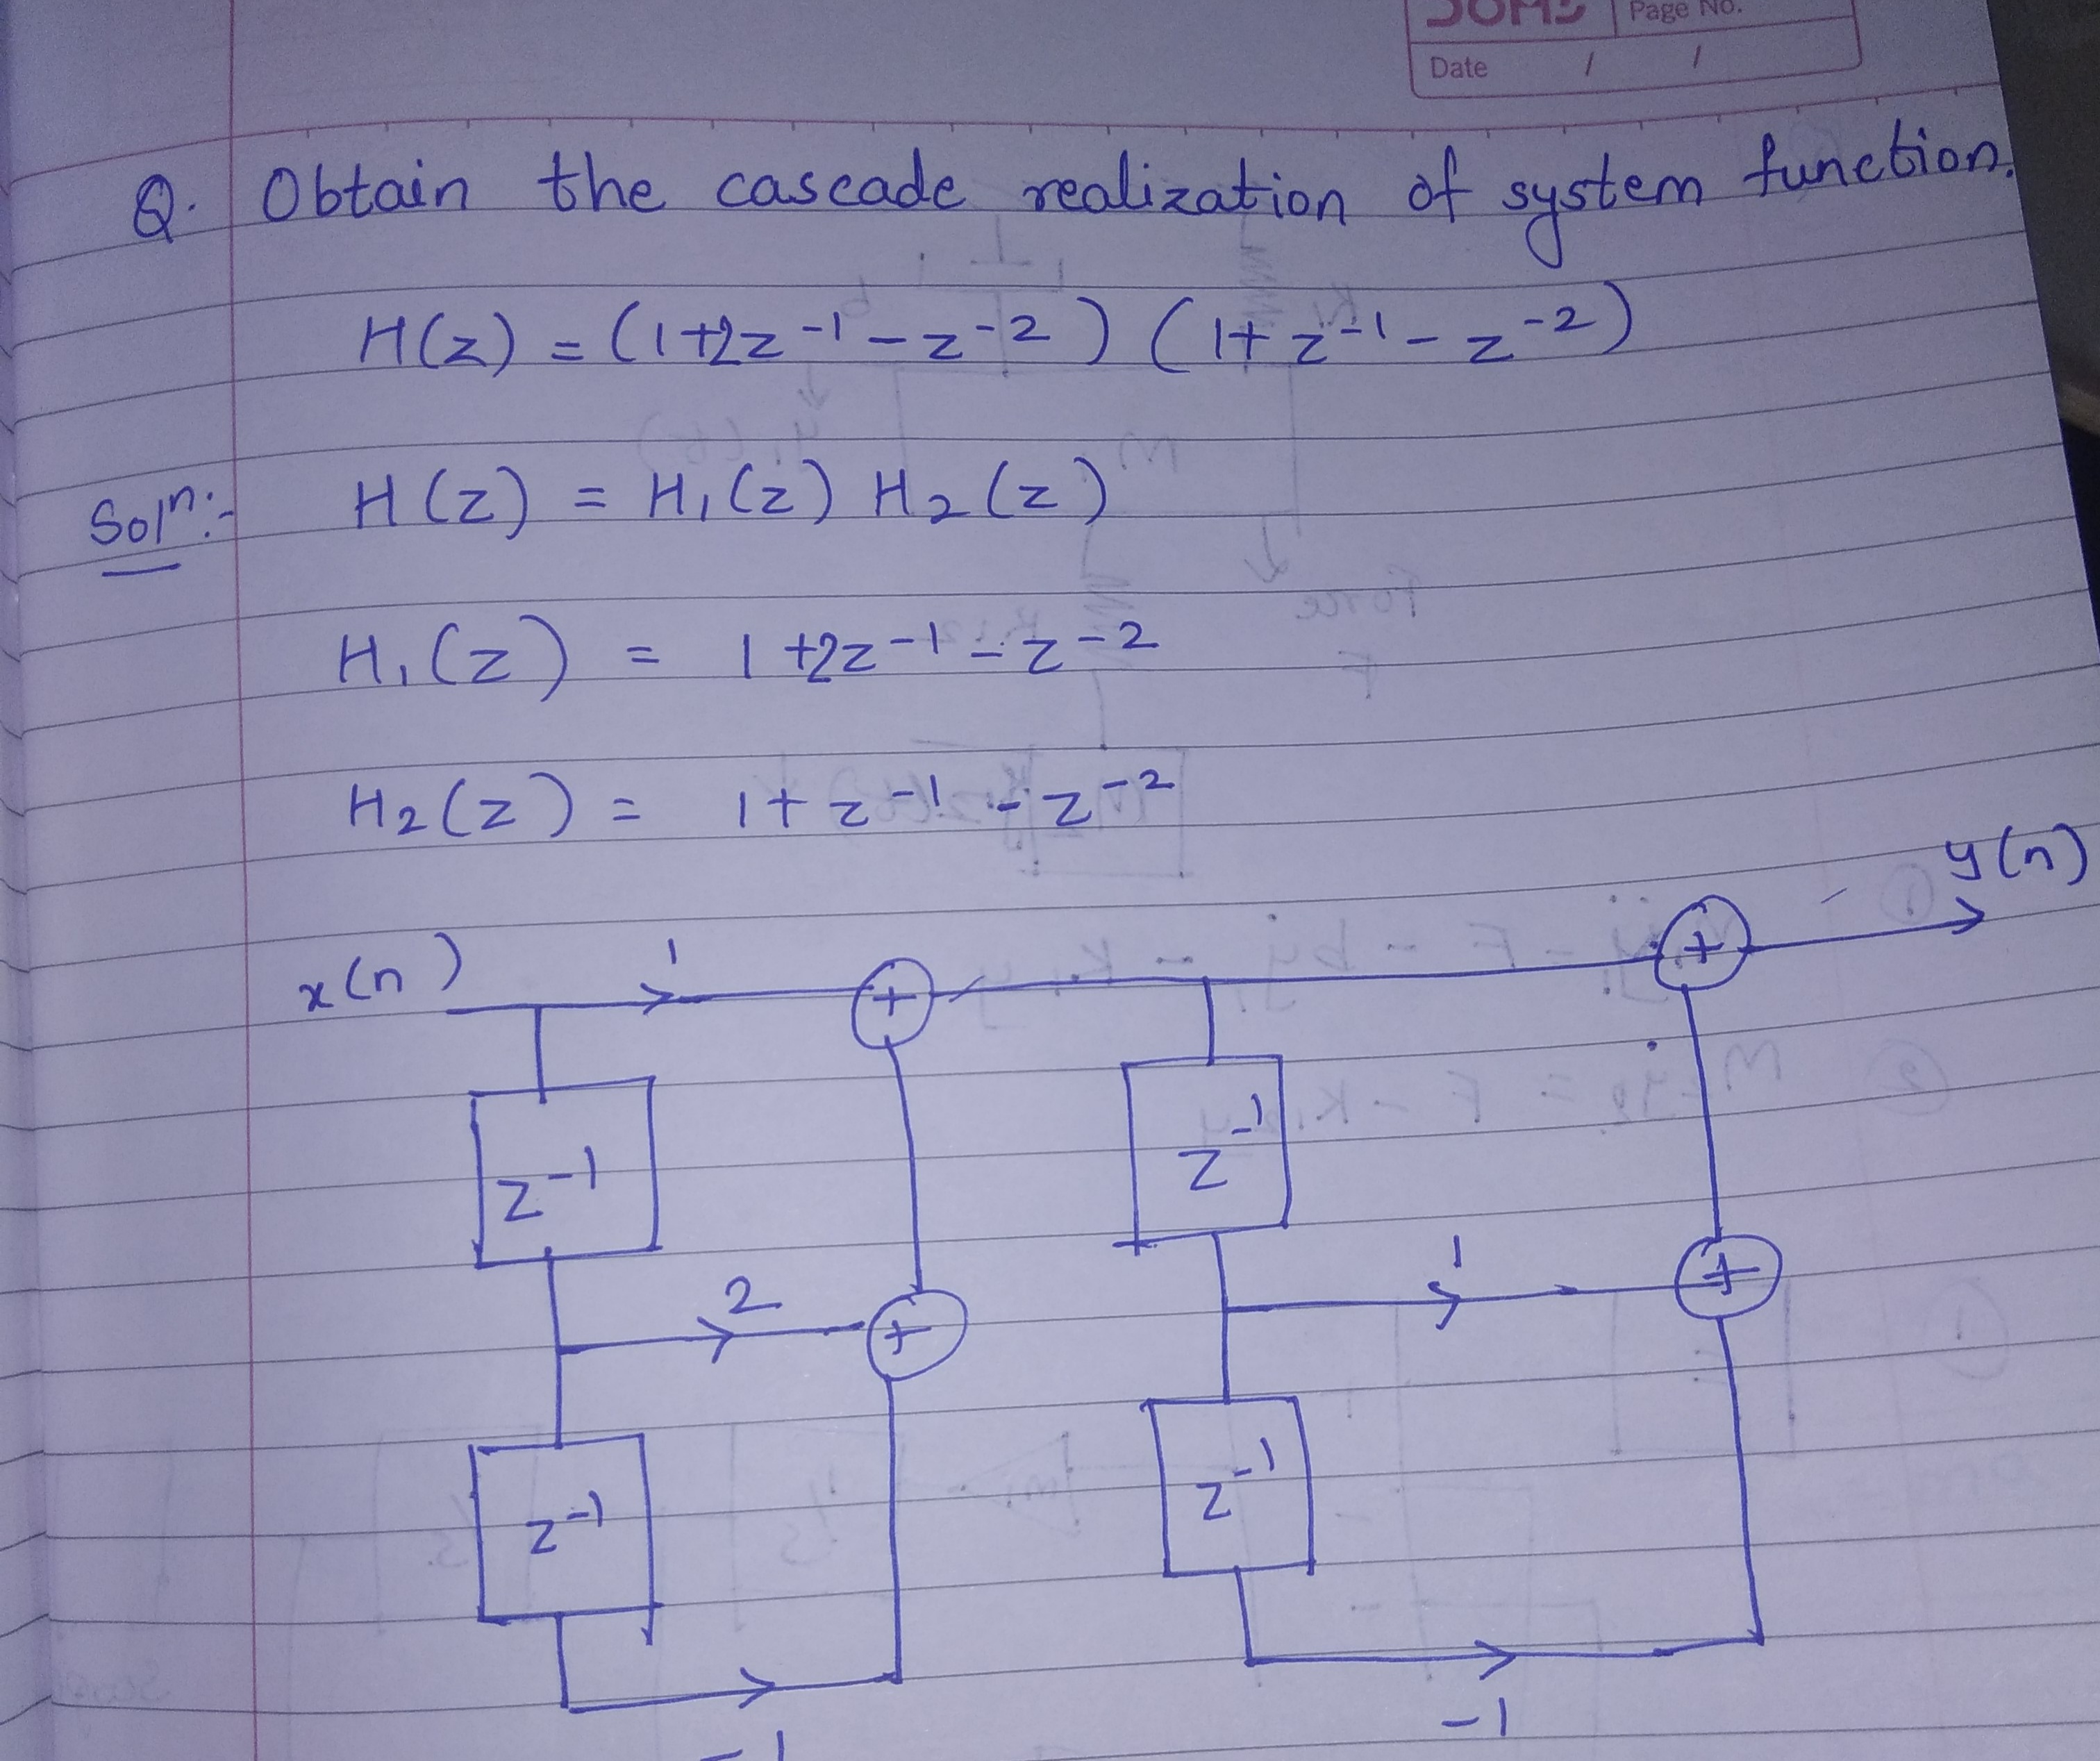 Page No.
Date / /
Q. Obtain the cascade realization of system function.
H(z) = (1+2z-1-z-2) (1+z-1-z-2)
Soln:- H(z) = H1(z) H2(z)
H1(z) = 1+2z-1-z-2
H2(z) = 1+z-1-z-2
y(n)
x(n) 1 + +
z-1 z-1
2 + 1 +
z-1 z-1
-1 -1